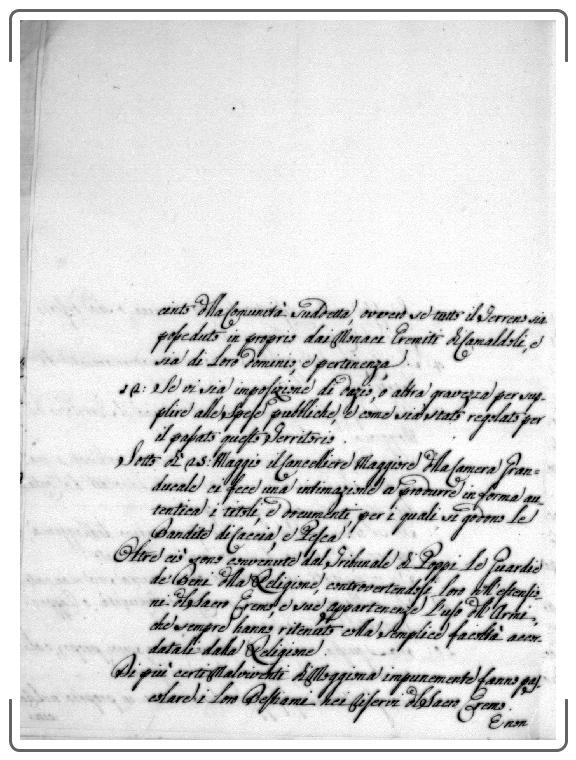 cinto dlla Comunità Suddetta, ovvero se tutto il Terreno sia
posseduto in proprio dai Monaci Eremiti di Camaldoli, e
sia di Loro dominio, e pertinenza.
12: Se vi sia imposizione di dazio, o altra gravezza per sup-
plire alle Spese pubbliche, e come sia stato regolato per
il passato questo Territorio.
Sotto di 23: Maggio il Cancelliere Maggiore dlla Camera Gran-
ducale ci fece una intimazione a produrre in forma au
tentica i titoli, e documenti, per i quali si godono le
Bandite di Caccia, e Pesca.
Oltre ciò sono convenute dal Tribunale di Poppi le Guardie
de' Beni dlla Religione, controvertendosi loro nell'estensio
ni dl Sacro Eremo, e sue appartenenze l'uso dll'Armi,
che sempre hanno ritenuto colla semplice facoltà accor
data li dalla Religione.
Di più certi Malviventi di Moggiona impunemente fanno pas
colare i loro Bestiami nei Riservi dl Sacro Eremo.
E non